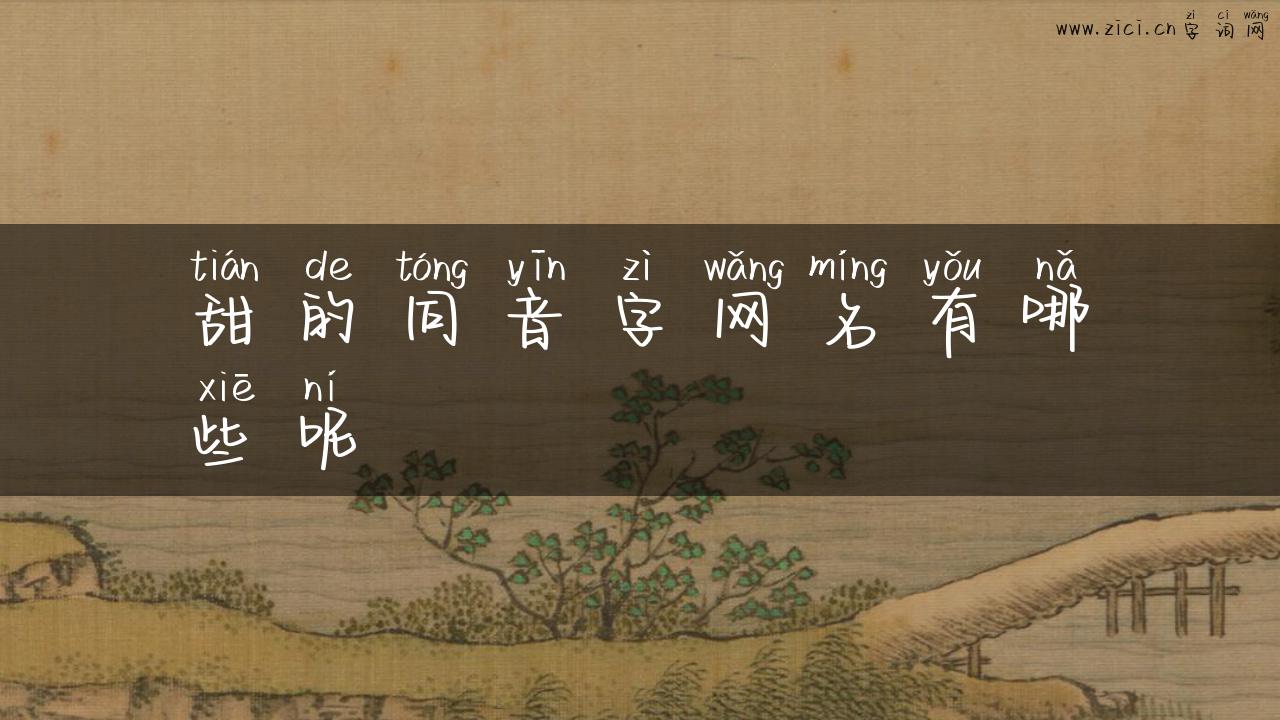 zì cí wǎng
www.zici.cn 字词网
tián de tóng yīn zì wǎng míng yǒu nǎ
甜的同音字网名有哪
xiē ní
些呢